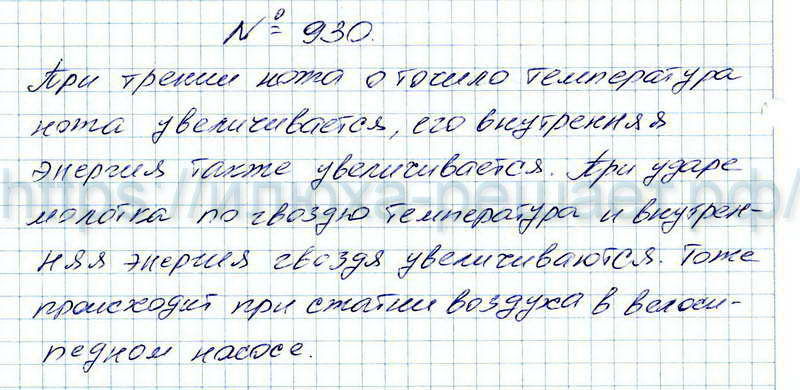 № 930.
При трении ножа о точило температура
ножа увеличивается, его внутренняя
энергия также увеличивается. При ударе
молотка по гвоздю температура и внутрен-
няя энергия гвоздя увеличиваются. Тоже
происходит при сжатии воздуха в велоси-
педном насосе.